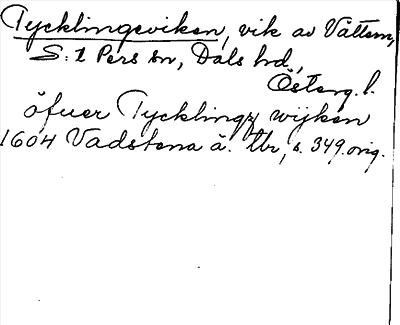 Tycklingeviken, vik av Vättern,
S:t Pers sn, Dals hd,
Österg. l.
öfuer Tycklingz wijken
1604 Vadstena ä. tbr, s. 349. orig.